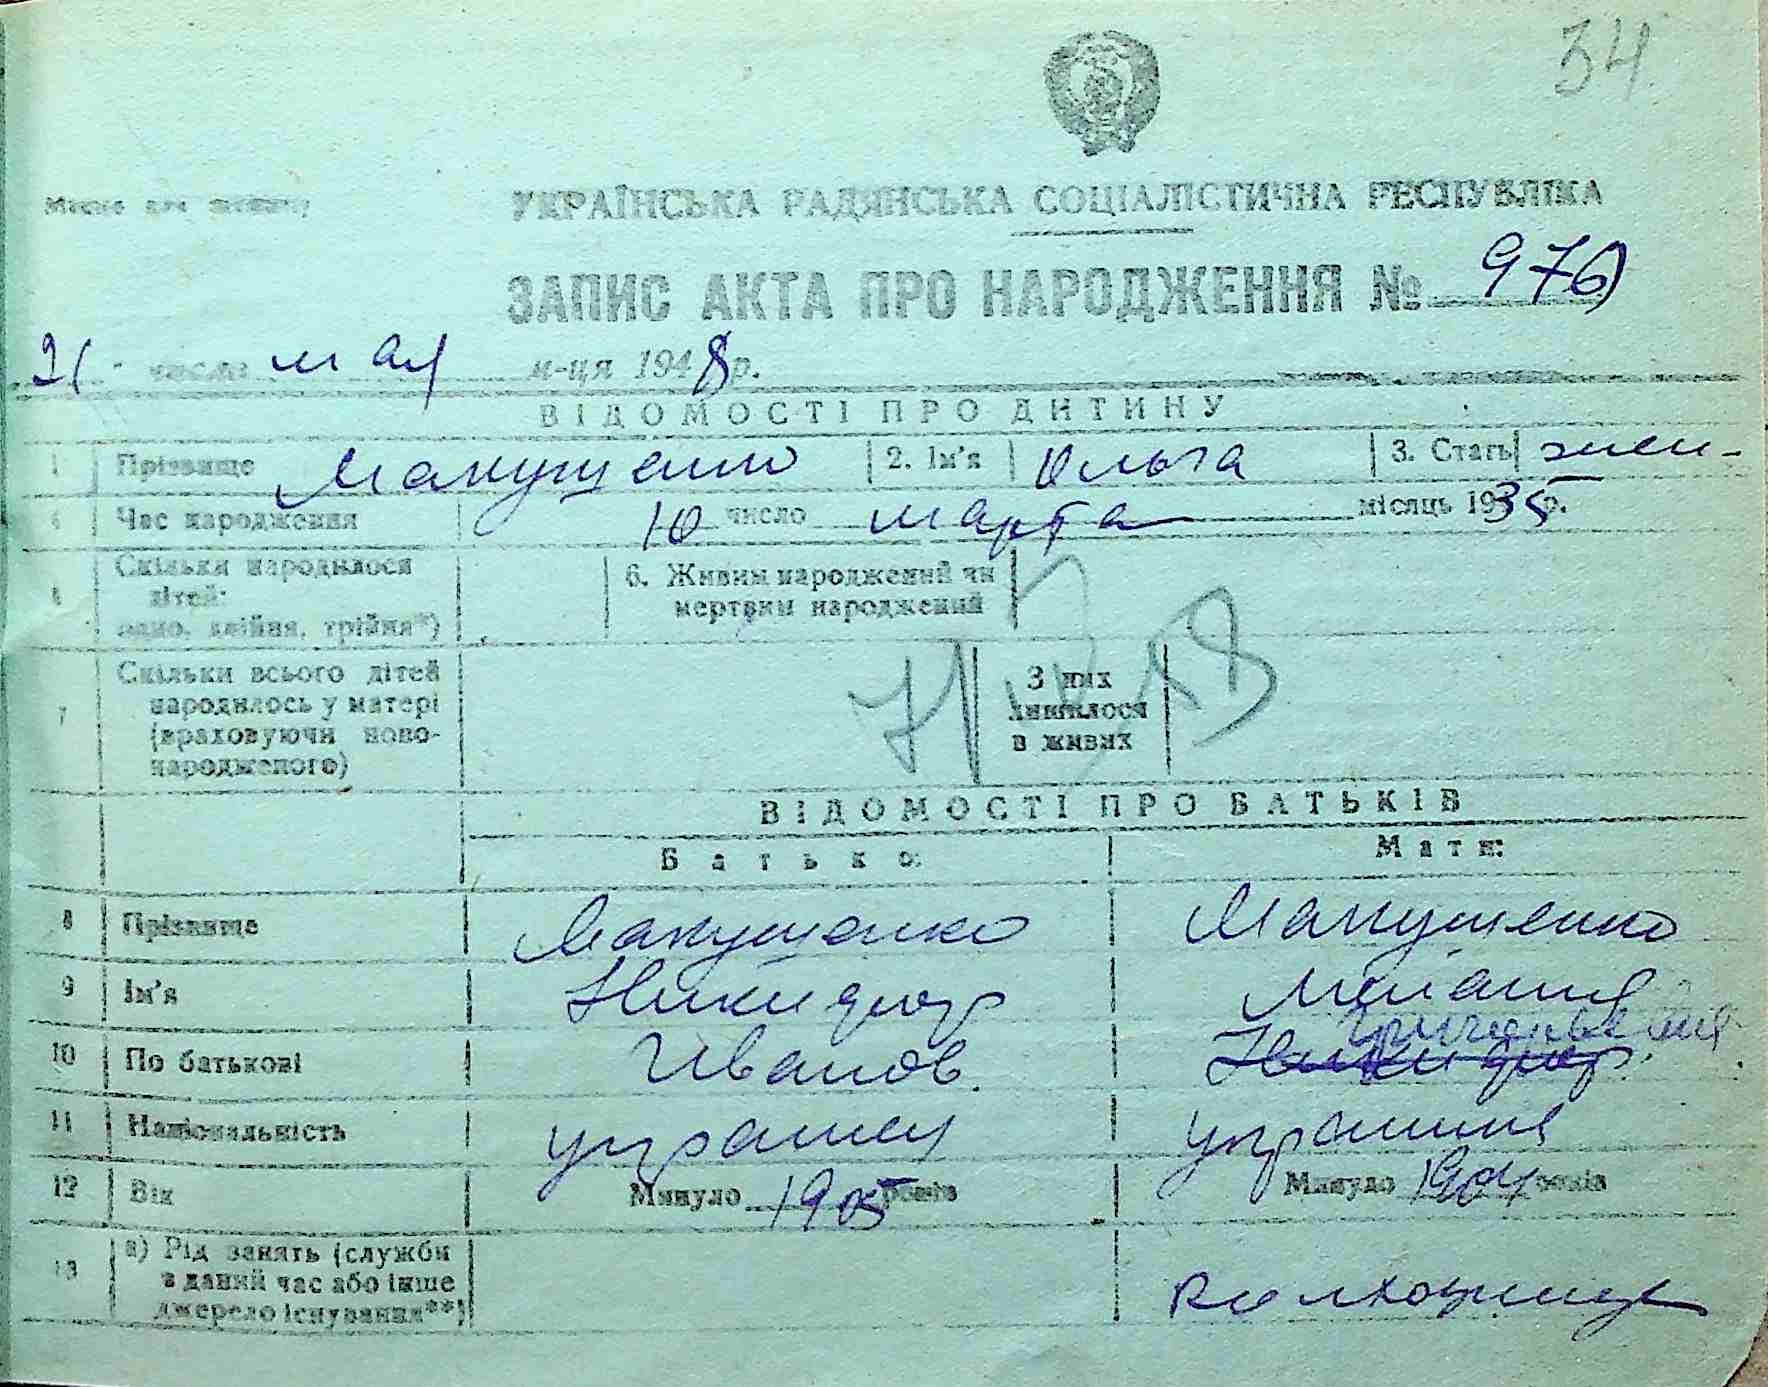 34
Місце для штампу
УКРАЇНСЬКА РАДЯНСЬКА СОЦІАЛІСТИЧНА РЕСПУБЛІКА
ЗАПИС АКТА ПРО НАРОДЖЕННЯ № 976
21 числа мая м-ця 1948 р.
ВІДОМОСТІ ПРО ДИТИНУ
1 Прізвище Макущенко 2. Ім'я Ольга 3. Стать жен-
4 Час народження 10 число марта місяць 1935 р.
Скільки народилося
дітей:
одно, двійня, трійня*)
6. Живим народжений чи
мертвим народжений
7 Скільки всього дітей
народилось у матері
(враховуючи ново-
народженого)
З них
лишилося
в живих
ВІДОМОСТІ ПРО БАТЬКІВ
Батько: Мати:
8 Прізвище Макущенко Макущенко
9 Ім'я Никифор Мелания
10 По батькові Иванов. Никифор.
11 Національність украинец украинка
12 Вік Минуло 1905 років Минуло 1904 років
13 а) Рід занять (служби
в даний час або інше
джерело існування**)
колхозница